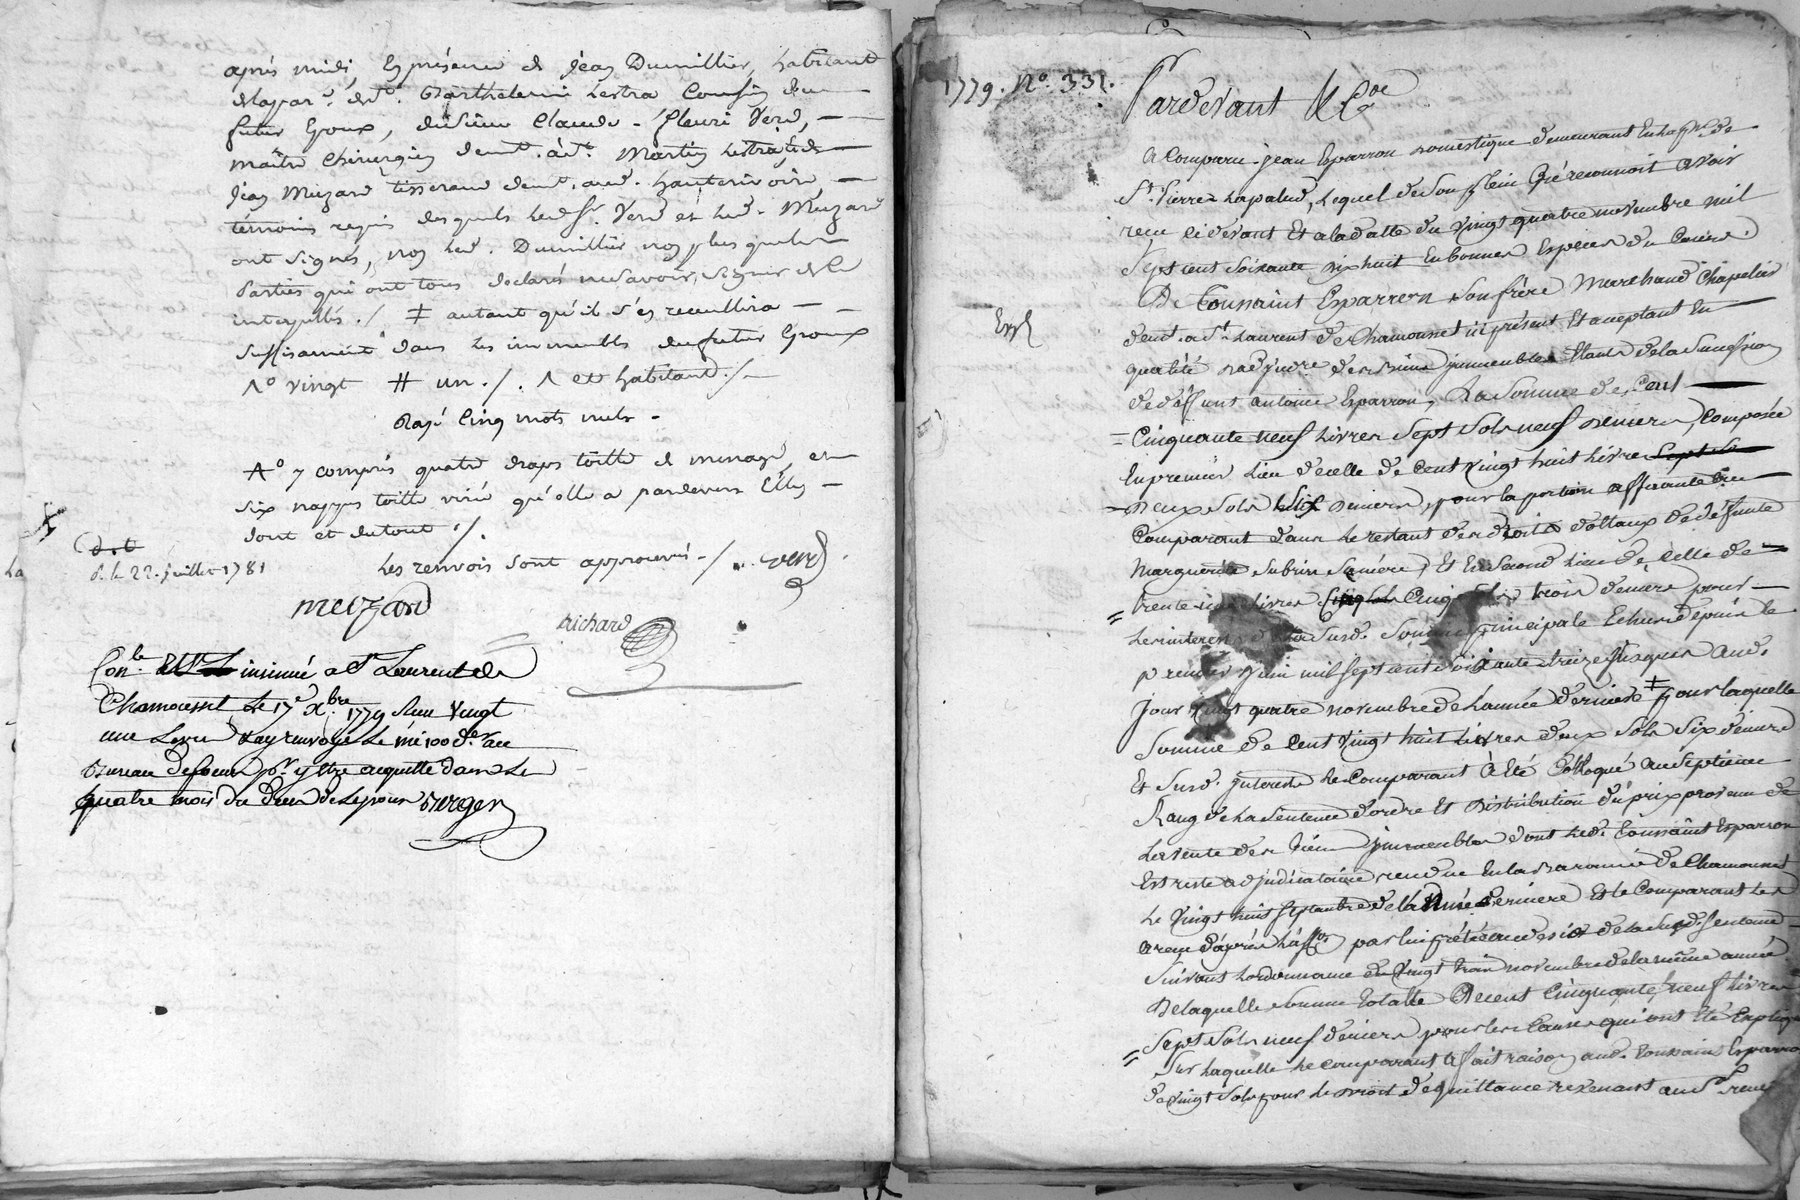 après midi, En présence de jean Dumillier, habitant
de la par. de St. Barthelemi Lestra Cousin du
futur Epoux, du sieur Claude - fleuri Verd,
maître chirurgien demt. à St. Martin Lestra, et de
jean Muzard tisserand demt. aud. hauterivoire,
témoins requis desquels led. Sr. Verd et led. Muzard
ont signés, non led. Dumillier non plus que les
Parties qui ont tous declarés ne savoir signer de ce
interpellés ./ ‡ autant qu'il s'en recueillira
suffisament dans les immeubles du futur Epoux
1° vingt # un ./. Λ et habitant ./
Rayé Cinq mots nuls -
A° y compris quatre draps toille de menage, et
six nappes toille virée qu'elle a pardevers Elle,
dont et du tout ./.
Les renvois sont approuvés ./ verd
d. le 22. juillet 1781
muzard
richard
Con.le insinué a St Laurent de
Chamousset Le 17e Xbre 1779 Reçu Vingt
une Livre Jay renvoyé Le me 100 d.er au
Bureau de feurs pr. y être acquitté dans Le
quatre mois du Deces De Lepoux Burger
1779. N°. 331.
Pardevant &Ca
A Comparu jean Esparron domestique demeurant En la pse. de
St. Pierre Lapalud, Lequel de Son plein Gré reconnoit avoir
recu cidevant Et a la datte du vingt quatre novembre mil
Sept cent Soixante dix huit En bonnes Especes du Cours
De Toussaint Esparron Son frère Marchand Chapelier
demt. a St. Laurent de Chamousset ici présent Et acceptant En
Exp.
qualité d'adjudre des biens jmmeubles Etants de la Succession
de déffunt antoine Esparron, La Somme de, Cent
Cinquante neuf Livres Sept Sols neuf deniers, Composée
En premier Lieu d'icelle de Cent vingt huit Livres
Deux Sols Six Deniers, pour la portion afferante au
Comparant dans Le restant des droits dottaux de défunte
Marguerite Subrin Sa mére, Et En Second Lieu de, Celle de
trente une Livres Cinq Sols trois deniers pour
Les interets de La Susd. Somme principale Echus depuis Le
premier juin mil Sept cent Soixante treize Jusques aud.
Jour vingt quatre novembre de L'année derniere ‡ pour laquelle
Somme de Cent vingt huit Livres deux Sols Six deniers
Et Susd. jnterets Le Comparant à Eté Colloqué au Septieme
Rang de La Sentence d'ordre Et Distribution du prix provenu de
La vente des biens jmmeubles dont Led. Toussaint Esparron
Est resté adjudicataire, rendue En la Baronnie de Chamousset
Le vingt huit Septembre de lannée derniere Et le Comparant Les
a recu d'après par lui prêtée de la Susd. Sentence
Suivant Lordonnance du vingt trois novembre de la même année
De laquelle Somme totalle de Cent Cinquante neuf Livres
Sept Sols neuf deniers pour les Causes qui ont Eté Expliq
Sur Laquelle Le comparant a fait raison aud. Toussaint Esparron
de vingt Sols pour Le droit de quittance revenant au Sr.